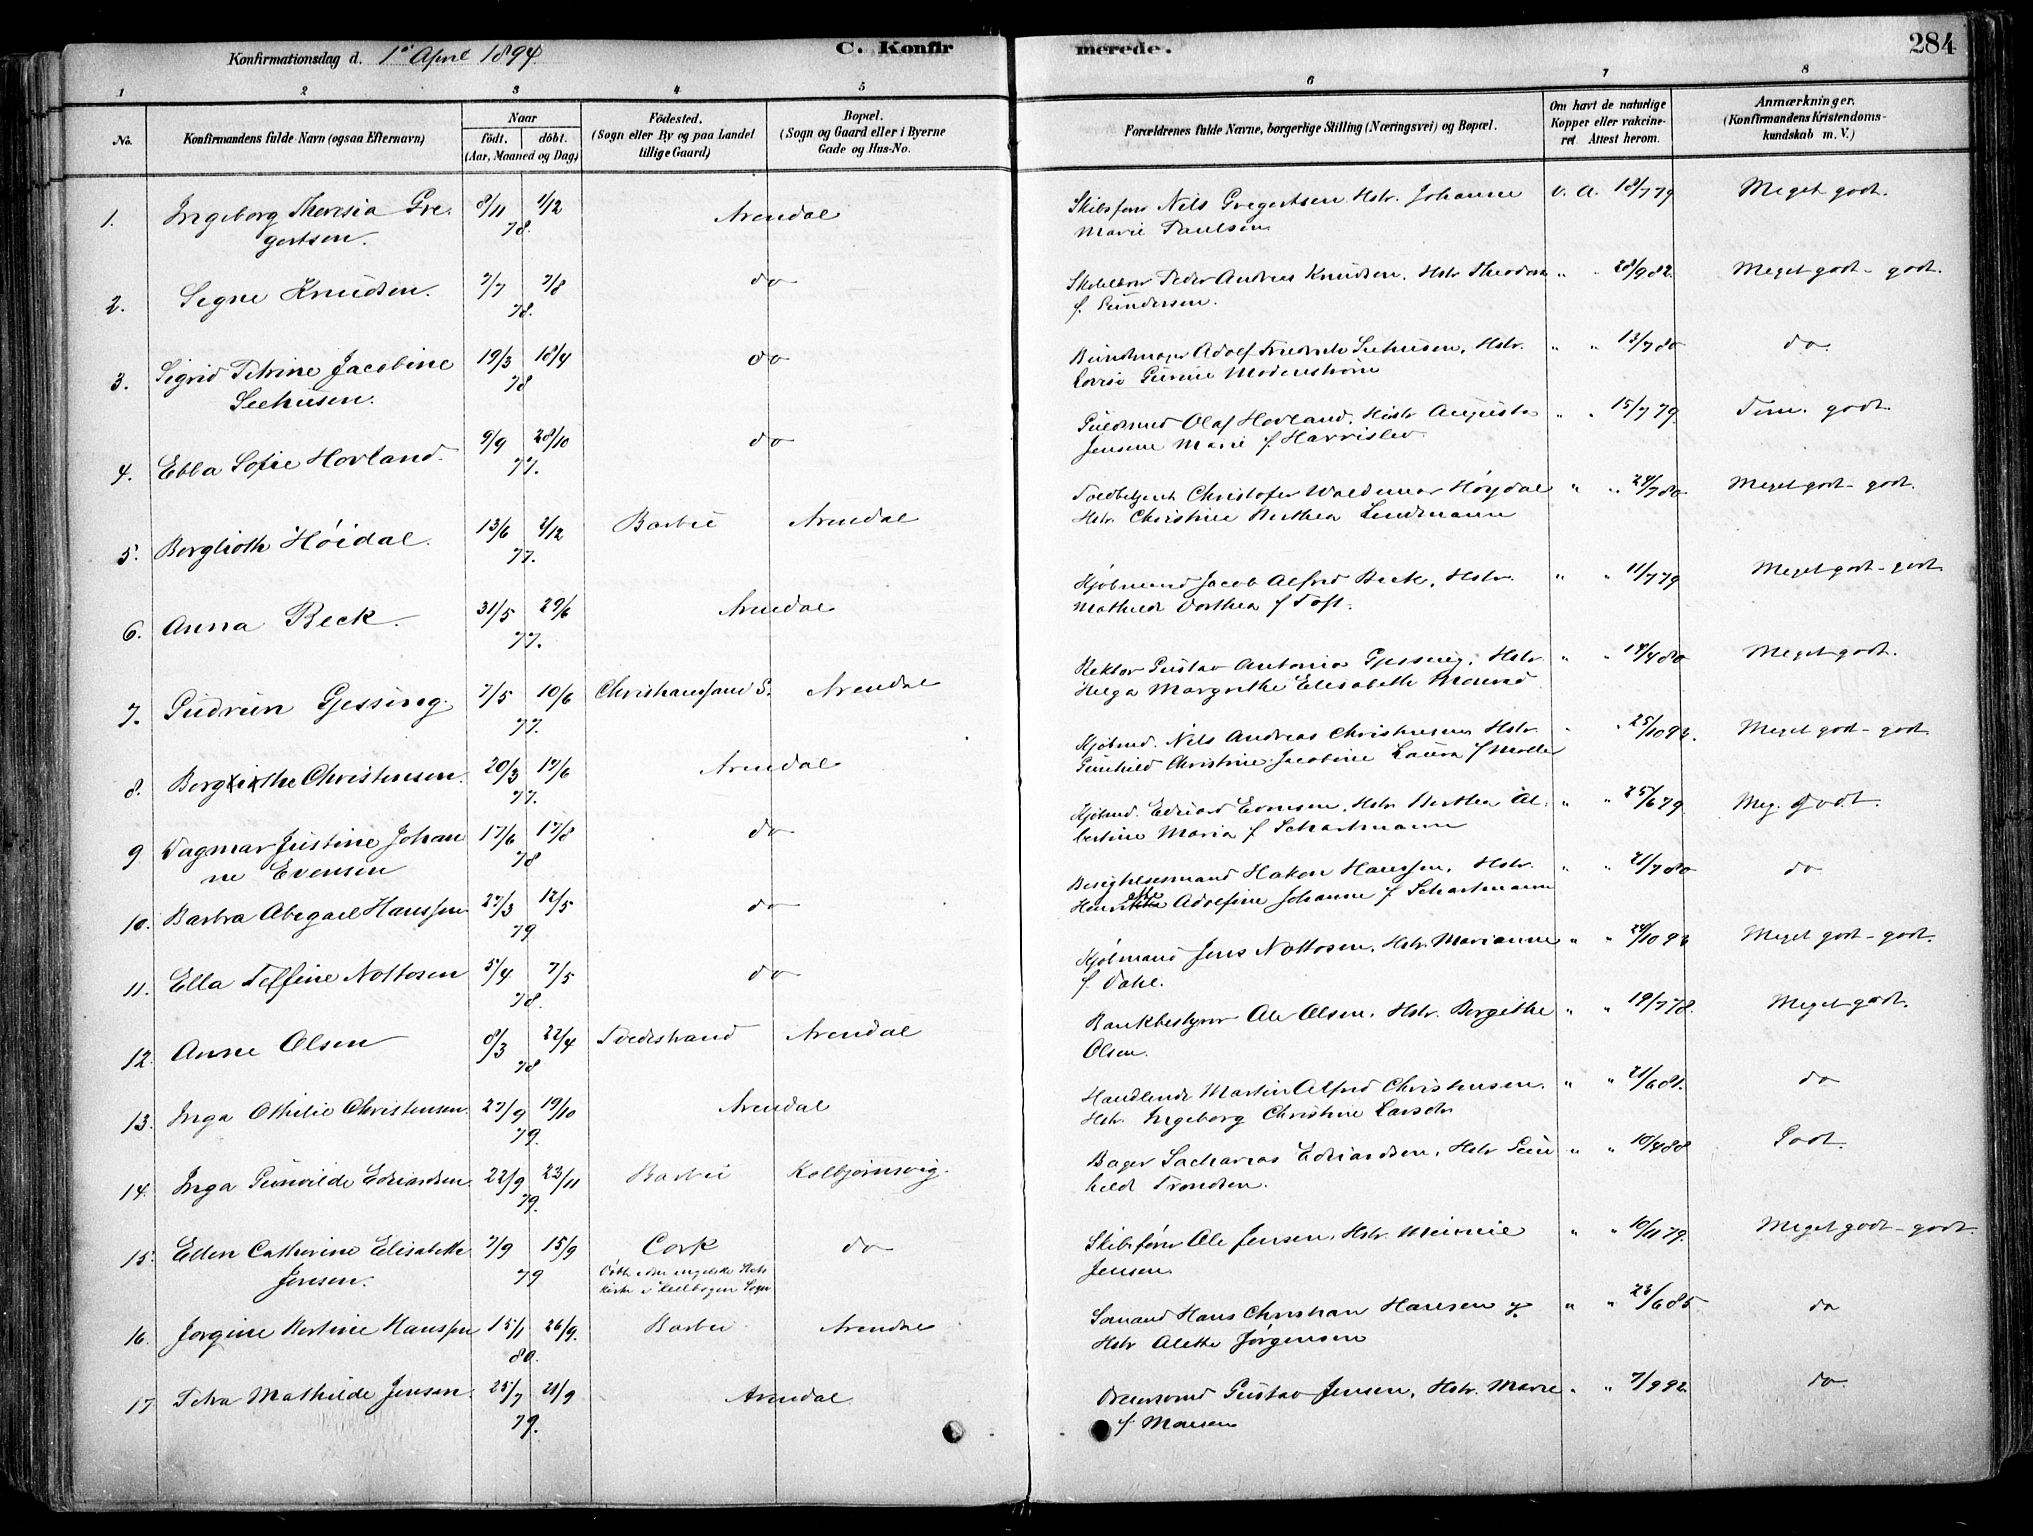 Konfirmationsdag d. 1ste April 1894. C. Konfirmerede. 284
1 2 3 4 5 6 7 8
No. Konfirmandens fulde Navn (ogsaa Efternavn) Naar født. døbt. (Aar, Maaned og Dag) Fødested. (Sogn eller By og paa Landet tillige Gaard) Bopæl. (Sogn og Gaard eller i Byerne Gade og Hus-No. Forældrenes fulde Navne, borgerlige Stilling (Næringsvei) og Bopæl. Om havt de naturlige Kopper eller vakcineret Attest herom. Anmærkninger. (Konfirmandens Kristendomskundskab m. V.)
1. Ingeborg Theresia Gre- 8/11 1/12 Arendal Skibsfører Nils Gregertsen Hstr. Johanne v. A. 18/7 79 Meget godt.
gertsen. 78. Marie Paulsen
2. Signe Knudsen. 2/7 7/8 do Peder Andreas Knudsen, Hstr Theodora " " 28/9 82. Meget godt - godt.
78. f. Gundersen.
3. Sigrid Petrine Jacobine 19/3 18/4 do Adolf Fredrik Seehusen, Hstr. " " 13/7 80 do.
Seehusen. 78 Lovise
4. Ebba Sofie Hovland. 9/9 28/10 do Guldsmed Olaf Hovland, Hstr Augusta " " 15/7 79. Tem. godt
77. Jensine Marie f. Harrislev.
5. Berglioth Høidal. 13/6 2/12 Barbu Arendal Toldbetjent Christofer Waldemar Høydal " " 24/7 80 Meget godt - godt.
77. Hstr. Christine Berthea Lindmann
6. Anna Beck. 31/5 29/6 Arendal Kjøbmand Jacob Alfred Beck, Hstr. " " 11/7 79 Meget godt - godt
77. Mathilde Dorthea f Toft.
7. Gudrun Gjessing. 7/5 10/6 Christianssand S. Arendal Rektor Gustav Antonio Gjessing, Hstr " " 14/4 80 Meget godt.
77. Helga Margrethe Elisabeth Monrad
8. Bergliothe Christensen. 20/3 17/6 Arendal Kjøbmd. Nils Andreas Christensen Hstr. " " 25/10 92. Meget godt - godt
77. Gunhild Christine Jacobine Laura f Møller
9 Dagmar Justine Johan 17/6 17/8 do Kjøbmd. Eduard Evensen, Hstr Berthea Al- " " 25/6 79. Meg. godt.
ne Evensen 78 bertine Maria f Schartmann
10. Barbra Abegael Hanssen 27/3 12/5 do Hakon Hanssen, Hstr. " " 21/7 80 do
79 Adolfine Johanne f Schartmann
11. Ella Telfine Nottosen 5/4 7/5 do Kjøbmand Jens Nottosen, Hstr. Marianne " " 24/10 92 Meget godt - godt.
78. f. Dahl.
12. Anne Olsen 8/3 22/4 Tvedestrand Arendal Bankbestyrer Ole Olsen, Hstr. Bergithe " " 19/7 78. Meget godt.
78 Olsen.
13. Inga Othilie Christensen. 27/9 19/10 Arendal Handlende Martin Alfred Christensen, " " 21/6 81. do
79. Hstr. Ingeborg Christine
14. Inga Gunvilde Eduardsen. 22/9 23/11 Barbu Kolbjørnsvig. Bager Sacharias Eduardsen, Hstr Gun " " 10/4 88 Godt.
79. hild Trondsen.
15. Ellen Catherine Elisabeth 7/9 15/9 Cork do Skibsfører Ole Jensen, Hstr. Minnie " " 10/11 79. Meget godt - godt.
Jensen. 79 Døbt i den engelske Jensen
16. Jørgine Bertine Hanssen 15/1 26/9. Barbu Arendal Sømand Hans Christian Hansen og " " 23/6 85. do
80. Hstr Alethe Jørgensen
17. Petra Mathilde Jensen. 25/7 21/9 Arendal Gustav Jensen, Hstr. Marie " " 7/9 92. do.
79. f